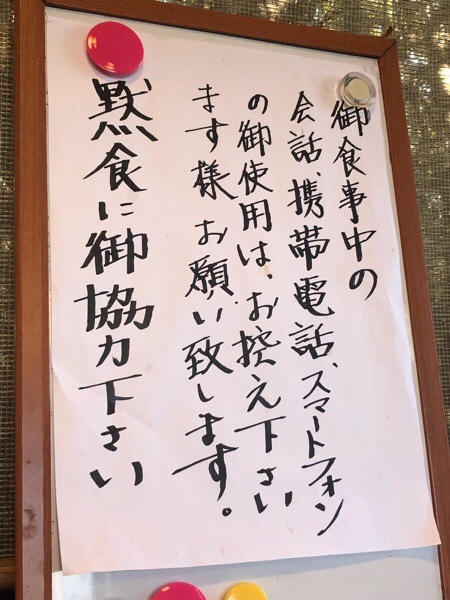 御食事中の
会話、携帯電話、スマートフォン
の御使用は、お控え下さい
ます様お願い致します。
黙食に御協力下さい